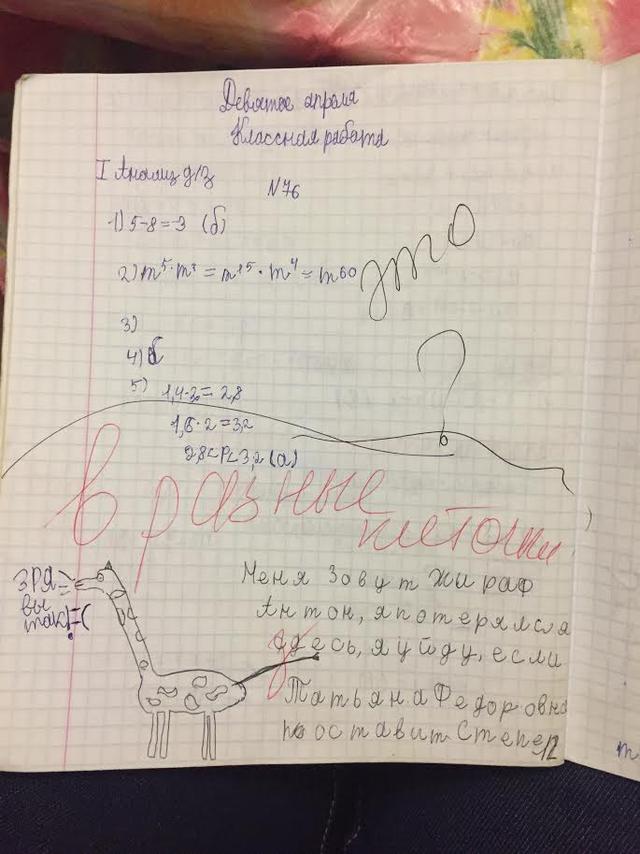 Девятое апреля
Классная работа
I Анализ д/з
N76
1) 5-8=-3 (б)
это
3)
4) б
?
5)
1,6·2=3,2
2,8<P<3,2 (а)
в разные
клеточки
ЗРЯ
вы
так! =(
Меня Зовут Жираф
Антон, я потерялся
здесь, я уйду, если
Татьяна Федоровна
поставит Степе 12
m